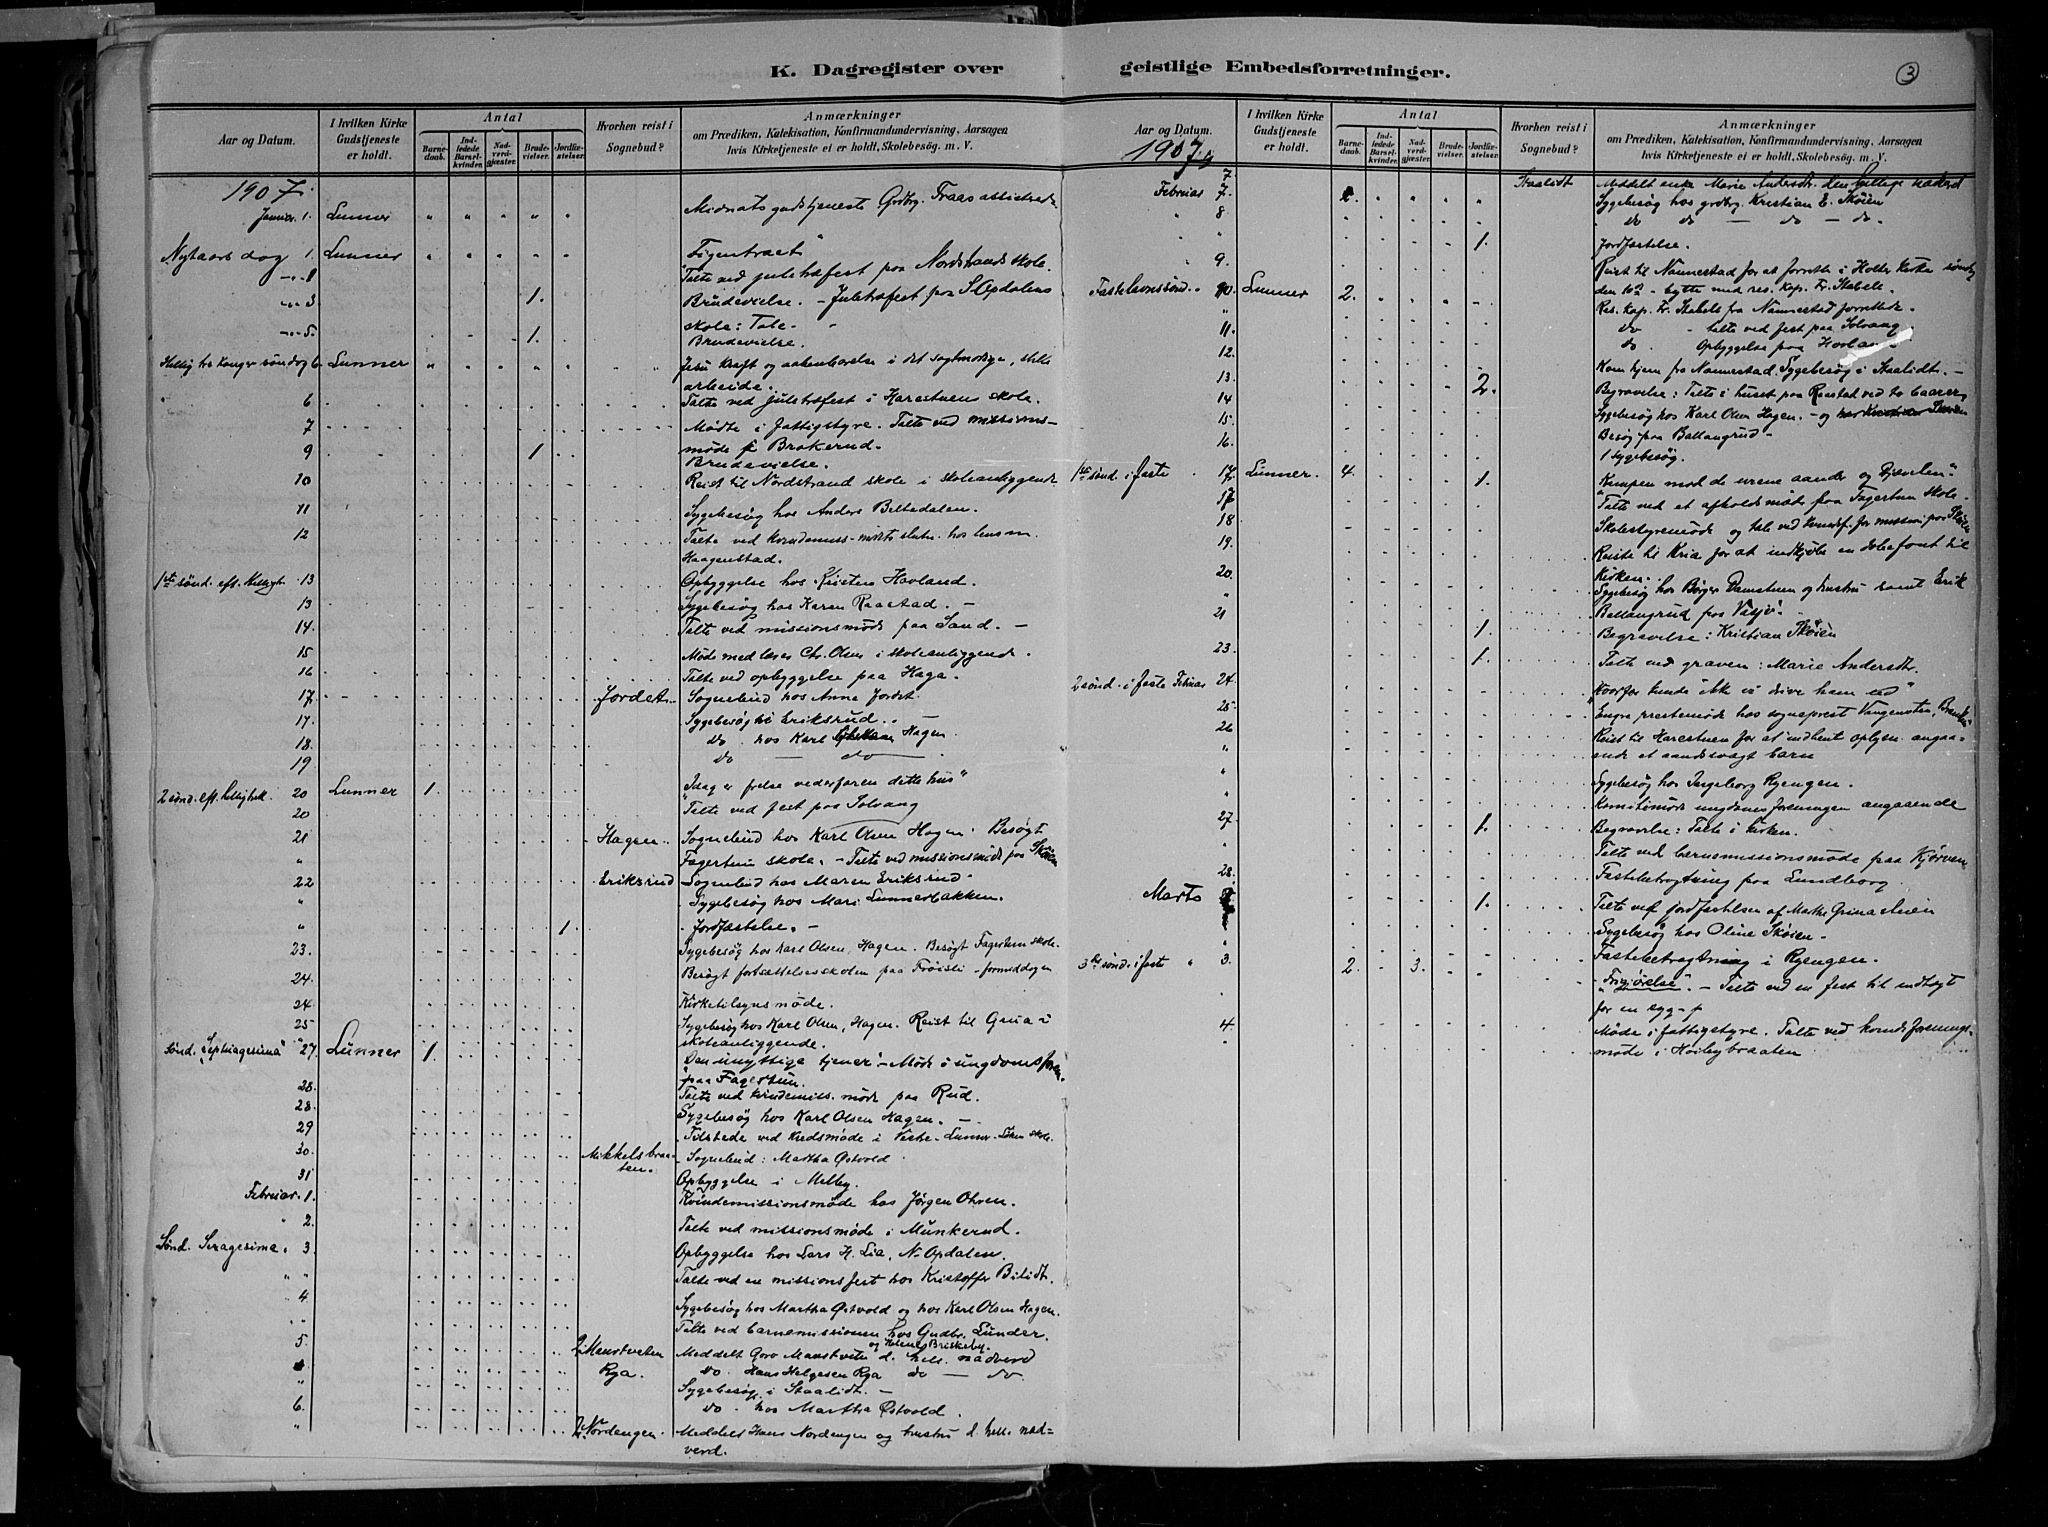 K. Dagregister over
Aar og Datum.
I hvilken Kirke Gudstjeneste er holdt.
Antal
Barnedaab.
Indledede Barselkvinder.
Nadverdgjæster.
Brudevielser.
Jordfæstelser.
Hvorhen reist i Sognebud?
Anmærkninger
om Prædiken, Katekisation, Konfirmandundervisning, Aarsagen
hvis Kirketjeneste ei er holdt, Skolebesøg. m. V.
1907.
Januar 1. Lunner " " " " " Midnatsgudstjeneste
Nytaarsdag 1. Lunner " " " " "
-"- 1 Talte ved juletræfest paa Nordstrand skole.
-"- 3 1. Brudevielse. - Juletræfest paa S. Opdalens
skole: Tale.
-"- 5. 1. Brudevielse.
Hellig tre konger søndag 6 Lunner " " " " " Jesu Kraft og aabenbarelse i det sagtmodige, stille
arbeide.
6 Talte ved juletræfest i Harestuen skole.
7 Møde i fattigstyre. Talte ved missions-
møde p Brokerud.
9 1 Brudevielse.
10 Reist til Nordstrand skole i skoleanliggende.
11 Sygebesøg hos Anders Beltedalen.
12 Talte ved kvindemiss.
Haagenstad.
1ste sønd. eft. Hellig 13 Opbyggelse hos Kristen Hovland.
13 Sygebesøg hos Karen Raastad. -
14. Talte ved missionsmøde paa Sand. -
15 Møde med lærer Chr. Olsen i skoleanliggende.
16 Talte ved opbyggelse paa Haga.
17. Jordet. Sognebud hos Anne Jordet.
17. Sygebesøg Eriksrud. -
18. do. hos Karl Hagen
19 do - do -
2 sønd. eft. hellig 20 Lunner 1. "Idag er frelse vederfaren dette hus"
20 Talte ved fest paa Solvang
21 Hagen. Sognebud hos Karl Olsen Hagen. Besøgt
" Fagertun skole. - Talte ved missionsmøde paa Skøien
22 Eriksrud Sognebud hos Maren Eriksrud.
" Sygebesøg hos Mari Lunnerbakken.
" 1 Jordfæstelse. -
23. Sygebesøg hos Karl Olsen, Hagen. Besøgt Fagertun skole.
24. Besøgt fortsættelsesskolen paa Frøisli - formiddagen
24. Kirketilsynsmøde.
25 Sygebesøg hos Karl Olsen, Hagen. Reist til Grua i
skoleanliggende.
Sønd. Septuagesima 27. Lunner 1. "Den unyttige tjener". - Møde i ungdomsforen.
paa Fagertun.
28. Talte ved kvindemiss. møde paa Rud.
28. Sygebesøg hos Karl Olsen Hagen. -
29 Tilstede ved kredsmøde i Vestre-Lunner skole.
30. Mikkelsbraaten. Sognebud: Martha Østvold
31 Opbyggelse i Melby.
Februar 1. Kvindemissionsmøde hos Jørgen Ohren.
" 2. Talte ved missionsmøde i Munkerud.
Sønd. Sexagesima 3. Opbyggelse hos Lars H. Lia, N. Opdalen.
" " Talte ved en missionsfest hos Kristoffer Bilidt.
4. Sygebesøg hos Martha Østvold og hos Karl Olsen Hagen.
" Talte ved barnemissionen hos Gudbr. Lunder.
og Helene Briskeby.
5. 2 Monstveten Meddelt Goro Monstveten d. hell. nadverd
Rya. do. Hans Helgesen Rya do - do.
" Sygebesøg i Staalidt. -
6. do. hos Martha Østvold.
" 2 Nordengen. Meddelt Hans Nordengen og hustru d. hell. nad-
verd.
geistlige Embedsforretninger.
3
Aar og Datum.
I hvilken Kirke Gudstjeneste er holdt.
Antal
Barnedaab.
Indledede Barselkvinder.
Nadverdgjæster.
Brudevielser.
Jordfæstelser.
Hvorhen reist i Sognebud?
Anmærkninger
om Prædiken, Katekisation, Konfirmandundervisning, Aarsagen
hvis Kirketjeneste ei er holdt, Skolebesøg. m. V.
1907.
7. Staalidt Meddelt enke Marie Andersdtr. den hellige nadverd
Februar 7. Sygebesøg hos grdbrg. Kristian E. Skøien
" 8 do do - do - do.
" " 1. Jordfæstelse.
" 9. Reist til Nannestad for at forrette i Holter kirke søndag
den 10de - bytte med res. kap. Fr. Stabell.
Fastelavnssønd. 10. Lunner 2. Res. kap. Fr. Stabell fra Nannestad forrettede.
" do. - talte ved fest paa Solvang
11. do. Opbyggelse paa Hovland
12. Kom hjem fra Nannestad. Sygebesøg i Staalidt. -
13. 2. Begravelse: Talte i huset paa Raastad ved to baarer.
14 Sygebesøg hos Karl Olsen Hagen. - og
15. Besøg paa Ballangrud -
16. 1 sygebesøg.
1ste sønd. i faste 17. Lunner. 4. 1. "Kampen mod de urene aander og Djævelen".
17 Talte ved et afholdsmøde paa Fagertun skole.
18 Skolestyremøde og tale ved kvindef. for mission paa Skøien
19. Reiste til Kria for at indkjøbe en døbefont til
kirken.
20. Sygebesøg hos Børger Damstuen og hustru samt Erik
" Ballangrud paa Volja. -
21 1. Begravelse: Kristian Skøien
23. 1. Talte ved graven: Marie Andersdtr.
2 sønd. i faste Februar 24. "Hvorfor kunde ikke vi drive ham ud"
25. Engre prestemøde hos sogneprest Vangensten, Brandbu
26 Reist til Harestuen for at indhente oplysn. angaa-
" ende et aandssvagt barn
" Sygebesøg hos Ingeborg Ryengen.
" Komitemøde ungdomsforeningen angaaende
27. 1. Begravelse: Talte i kirken.
" Talte ved barnemissionsmøde paa Kjørven
28. Fastebetragtning paa Lundborg.
Marts 1. Talte ved jordfæstelsen af Marthe Grinaker
Sygebesøg hos Oline Skøien -
" Fastebetragtning i Ryengen.
3die sønd. i faste " 3. 2. - 3. "Frigjørelse". - Talte ved en fest til indtægt
for en syg
4. Møde i fattigstyre. Talte ved
møde i Hoibybraaten